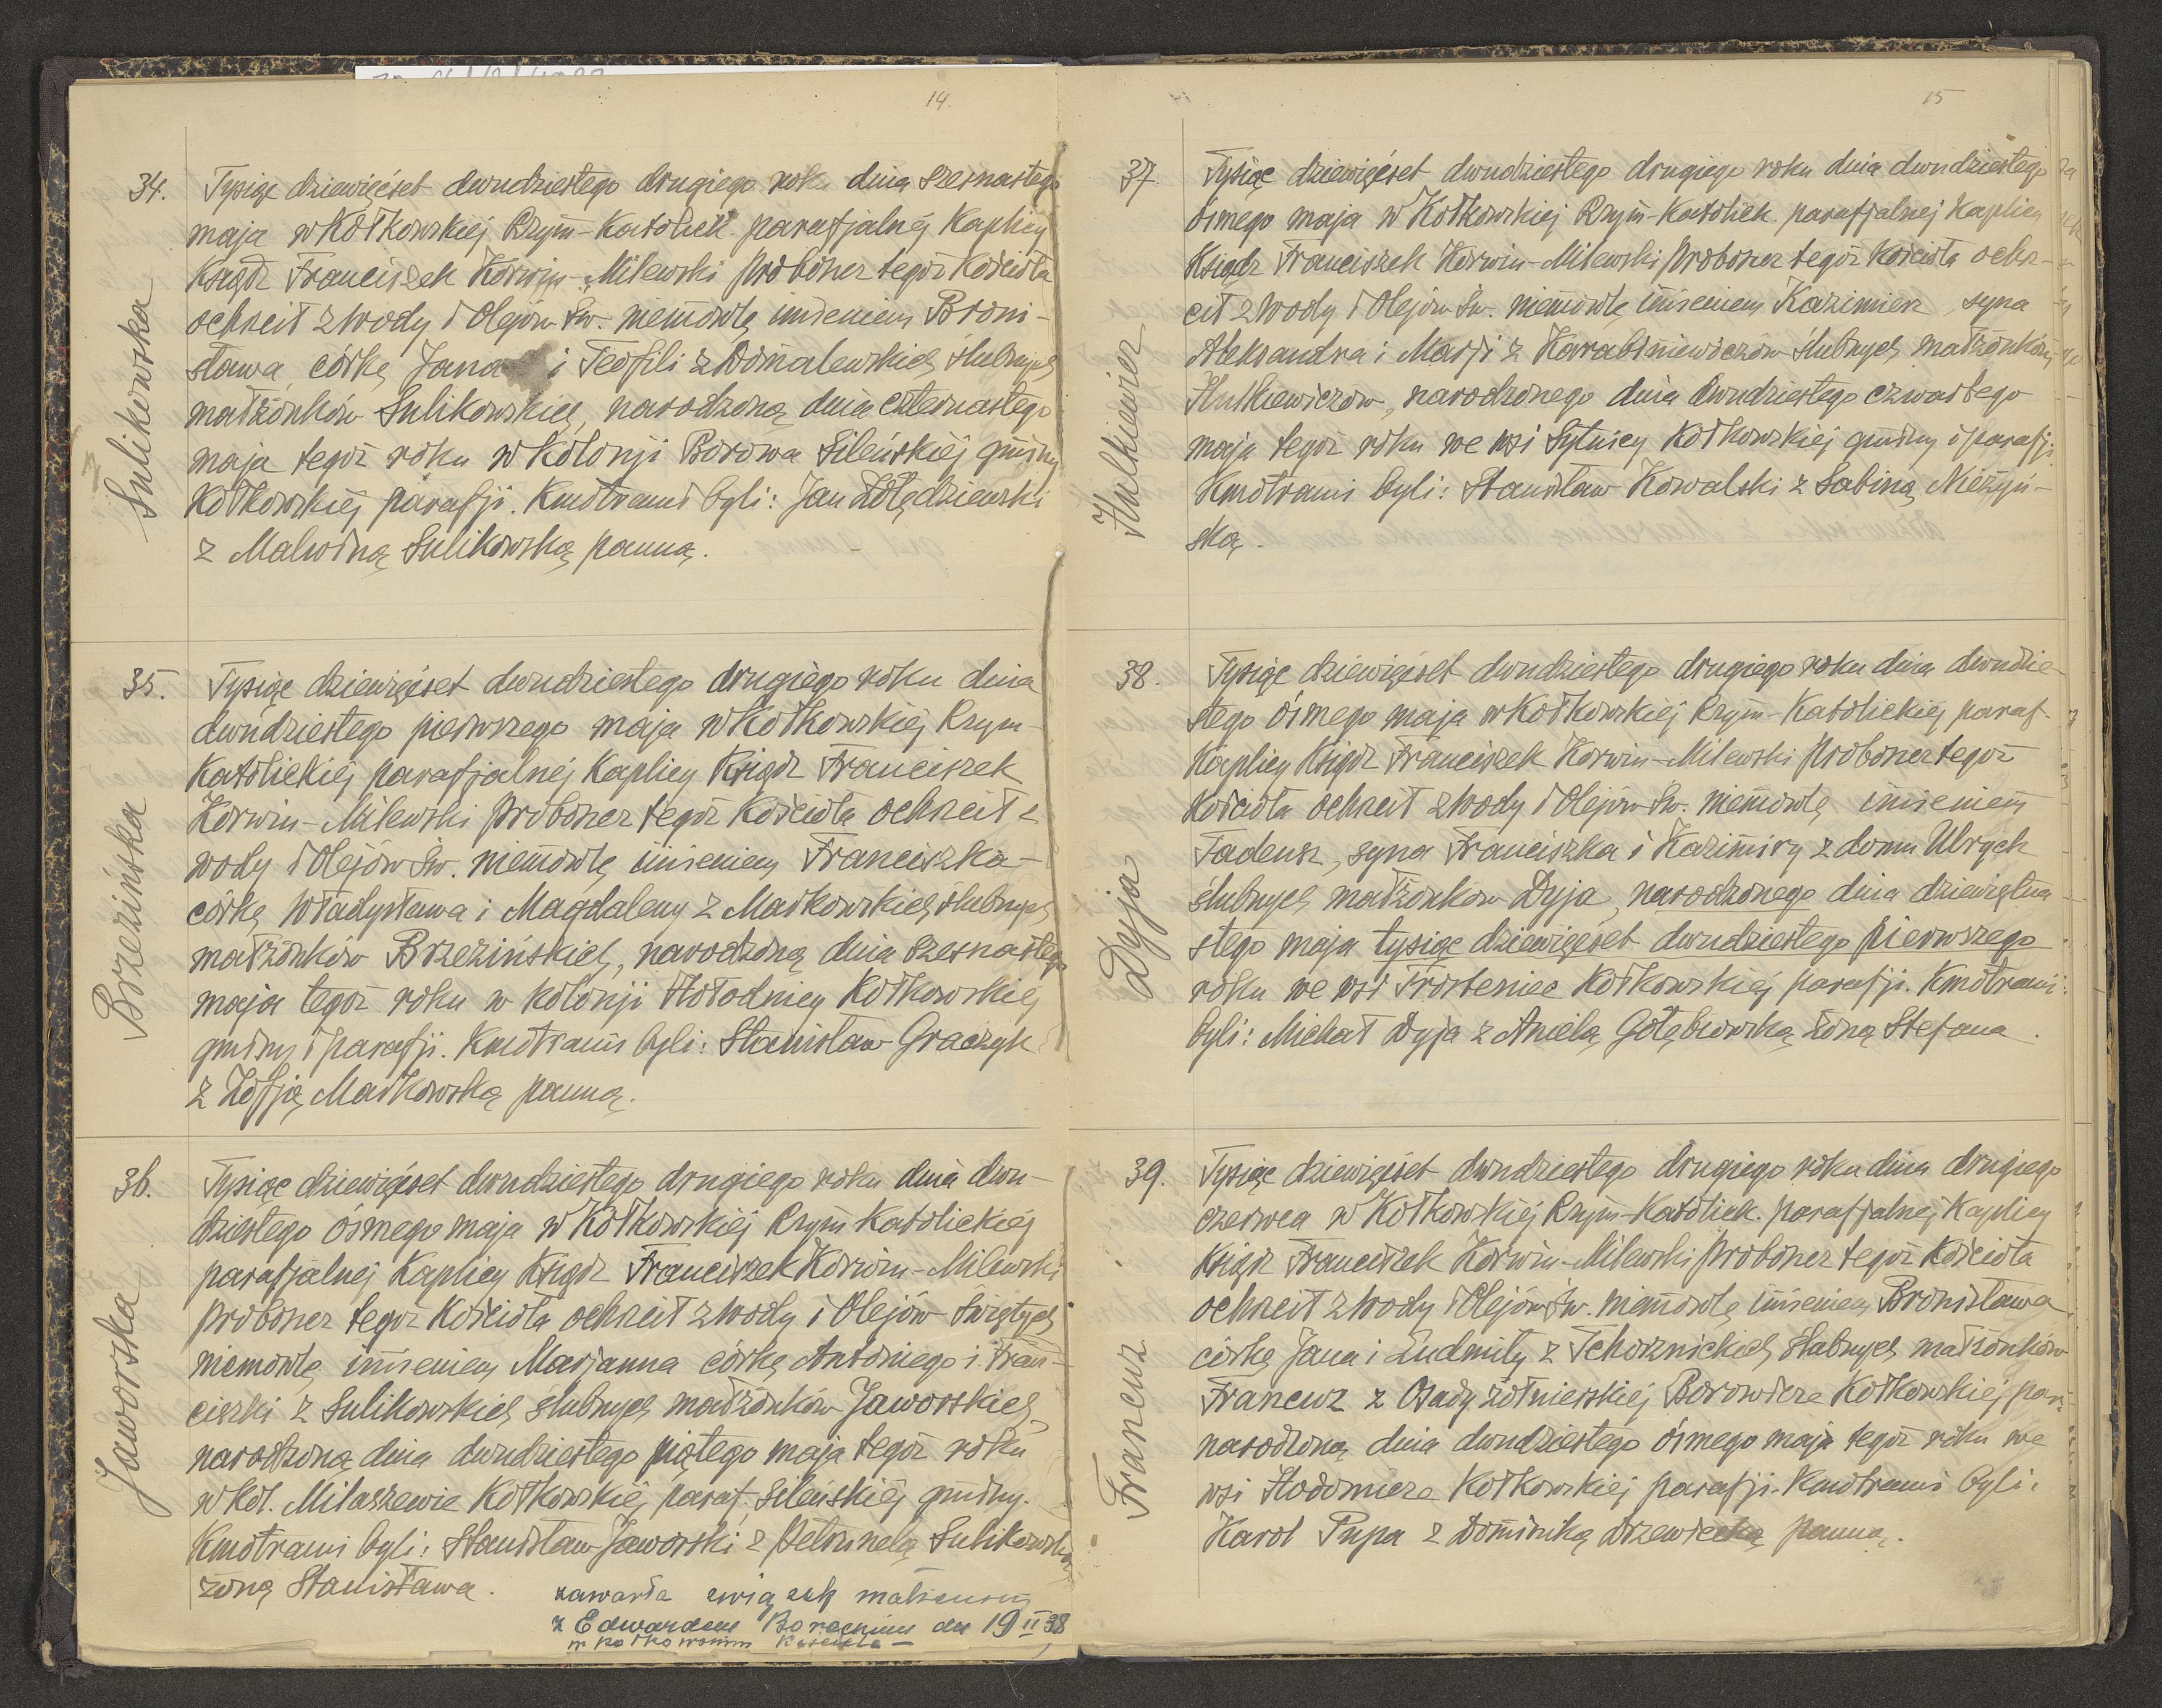 14.
34.
Sulikowska
Tysiąc dziewięćset dwudziestego drugiego roku dnia szesnastego
maja w Kołkowskiej Rzym-Katolick. parafjalnej Kaplicy
Ksiądz Franciszek Korwin-Milewski proboszcz tegoż Kościoła
ochrzcił z Wody i Olejów Św. niemowlę imieniem Broni-
sława, córkę Jana i Teofili z Domalewskich ślubnych
małżonków Sulikowskich, narodzoną dnia czternastego
maja tegoż roku w Kolonji Borowa Sileńskiej gminy
Kołkowskiej parafji. Kmotrami byli: Jan Żołędziewski
z Malwiną Sulikowską panną.
35.
Brzezińska
Tysiąc dziewięćset dwudziestego drugiego roku dnia
dwudziestego pierwszego maja w Kołkowskiej Rzym-
Katolickiej parafjalnej Kaplicy Ksiądz Franciszek
Korwin-Milewski proboszcz tegoż Kościoła ochrzcił z
wody i Olejów Św. niemowlę imieniem Franciszka-
córkę Władysława i Magdaleny z Małkowskich ślubnych
małżonków Brzezińskich, narodzoną dnia szesnastego
maja tegoż roku w kolonji Hołodnicy Kołkowskiej
gminy i parafji. Kmotrami byli: Stanisław Graczyk
z Zofją Małkowską panną.
36.
Jaworska
Tysiąc dziewięćset dwudziestego drugiego roku dnia dwu-
dziestego ósmego maja w Kołkowskiej Rzym Katolickiej
parafjalnej Kaplicy Ksiądz Franciszek Korwin-Milewski
proboszcz tegoż Kościoła ochrzcił z Wody i Olejów Świętych
niemowlę imieniem Marjanna córkę Antoniego i Fran-
ciszki z Sulikowskich ślubnych małżonków Jaworskich,
narodzoną dnia dwudziestego piątego maja tegoż roku
w Kol. Milaszewie Kołkowskiej paraf. Sileńskiej gminy.
Kmotrami byli: Stanisław Jaworski z Petrunelą Sulikowską
żoną Stanisława.
zawarła związek małżeński
z Edwardem dn 19 II 38
w Kołkowskim Kościele
15
37.
Hulkiewicz
Tysiąc dziewięćset dwudziestego drugiego roku dnia dwudziestego
ósmego maja w Kołkowskiej Rzym-Katolick. parafjalnej Kaplicy
Ksiądz Franciszek Korwin-Milewski proboszcz tegoż Kościoła ochrz-
cił z Wody i Olejów Św. niemowlę imieniem Kazimierz, syna
Aleksandra i Marji z Karabiniewiczów ślubnych małżonków
Hulkiewiczów, narodzonego dnia dwudziestego czwartego
maja tegoż roku we wsi Sytnicy Kołkowskiej gminy i parafji.
Kmotrami byli: Stanisław Kowalski z Sabiną Nieżyń-
ską.
38.
Dyja
Tysiąc dziewięćset dwudziestego drugiego roku dnia dwudzie-
stego ósmego maja w Kołkowskiej Rzym-Katolickiej paraf.
Kaplicy Ksiądz Franciszek Korwin-Milewski proboszcz tegoż
Kościoła ochrzcił z Wody i Olejów Św. niemowlę imieniem
Tadeusz, syna Franciszka i Kazimiry z domu Ulrych
ślubnych małżonków Dyja, narodzonego dnia dziewiętna-
stego maja tysiąc dziewięćset dwudziestego pierwszego
roku we wsi Trosteniec Kołkowskiej parafji. Kmotrami
byli: Michał Dyja z Anielą Gołębiowską żoną Stefana.
39.
Francuz
Tysiąc dziewięćset dwudziestego drugiego roku dnia drugiego
czerwca w Kołkowskiej Rzym-Katolick. parafjalnej Kaplicy
Ksiądz Franciszek Korwin-Milewski proboszcz tegoż Kościoła
ochrzcił z Wody i Olejów Św. niemowlę imieniem Bronisława
córkę Jana i Ludmiły z Tchorznickich ślubnych małżonków
Francuz z Osady żołnierskiej Borowicze Kołkowskiej par.
narodzoną dnia dwudziestego ósmego maja tegoż roku we
wsi Hodomicze Kołkowskiej parafji. Kmotrami byli:
Karol Pupa z Dominiką Drzewiecką panną.